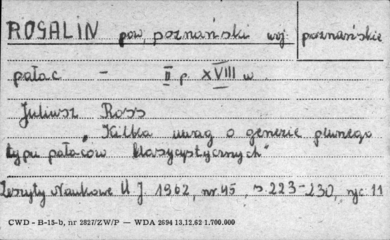 ROGALIN pow. poznański woj. poznańskie
pałac – II p. XVIII w
Juliusz Ross
„Kilka uwag o genezie pewnego
typu pałaców klasycystycznych"
Zeszyty Naukowe U J. 1962, nr. 45, s. 223-230, ryc. 11
CWD - B-15-b, nr 2827/ZW/P — WDA 2694 13.12.62 1.700.000